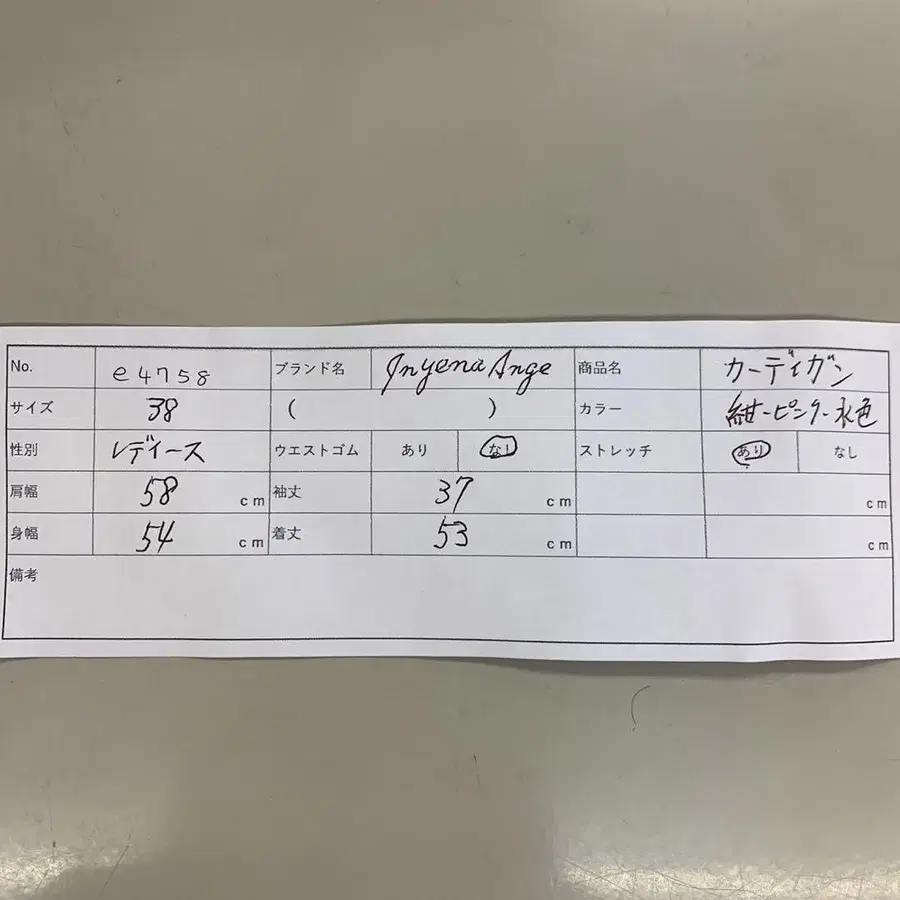 No. e4758 ブランド名 Inyena Ange 商品名 カーディガン
サイズ 38 ( ) カラー 紺ーピンクー水色
性別 レディース ウエストゴム あり なし ストレッチ あり なし
肩幅 58 cm 袖丈 37 cm cm
身幅 54 cm 着丈 53 cm cm
備考